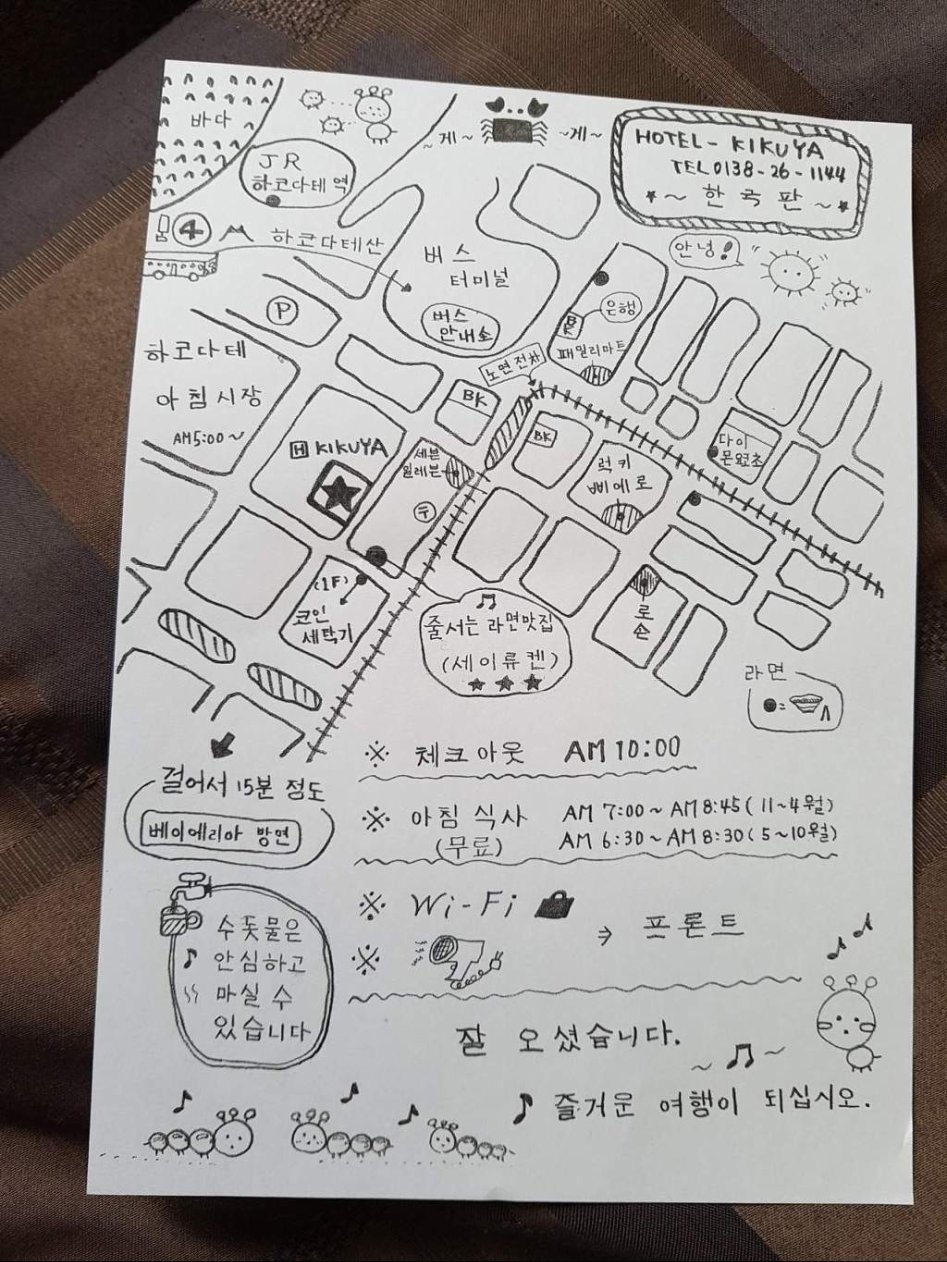 바다
~게~ ~게~
HOTEL - KIKUYA
TEL 0138-26-1144
★~ 한국판 ~★
JR
하코다테 역
안녕!
④ 하코다테산
버스
터미널
버스
안내소
은행
BK
패밀리마트
노면전차
P
하코다테
아침시장
AM5:00~
BK
BK
H KIKUYA
세븐
일레븐
럭키
삐에로
다이
몬요코쵸
(1F)
코인
세탁기
로손
♫
줄서는 라면맛집
(세이류켄)
★ ★ ★
라면
● =
걸어서 15분 정도
베이에리아 방면
※ 체크아웃 AM 10:00
※ 아침 식사 AM 7:00~AM 8:45 (11~4월)
(무료) AM 6:30~AM 8:30 (5~10월)
※ Wi-Fi
※ → 프론트
수돗물은
♪ 안심하고
마실 수
있습니다
잘 오셨습니다.
~♫~
♪ 즐거운 여행이 되십시오.